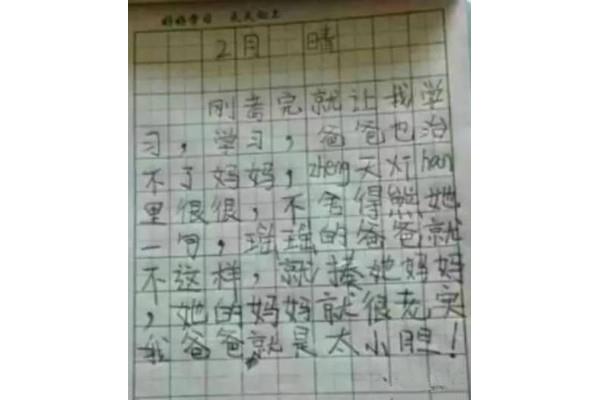 好好学习 天天向上
2月 晴
刚考完就让我学
习，学习，爸爸也治
不了妈妈，zheng天xi han
里很很，不舍得熊她
一句，瑶瑶的爸爸就
不这样，就揍她妈妈
，她的妈妈就很老实
我爸爸就是太小胆！